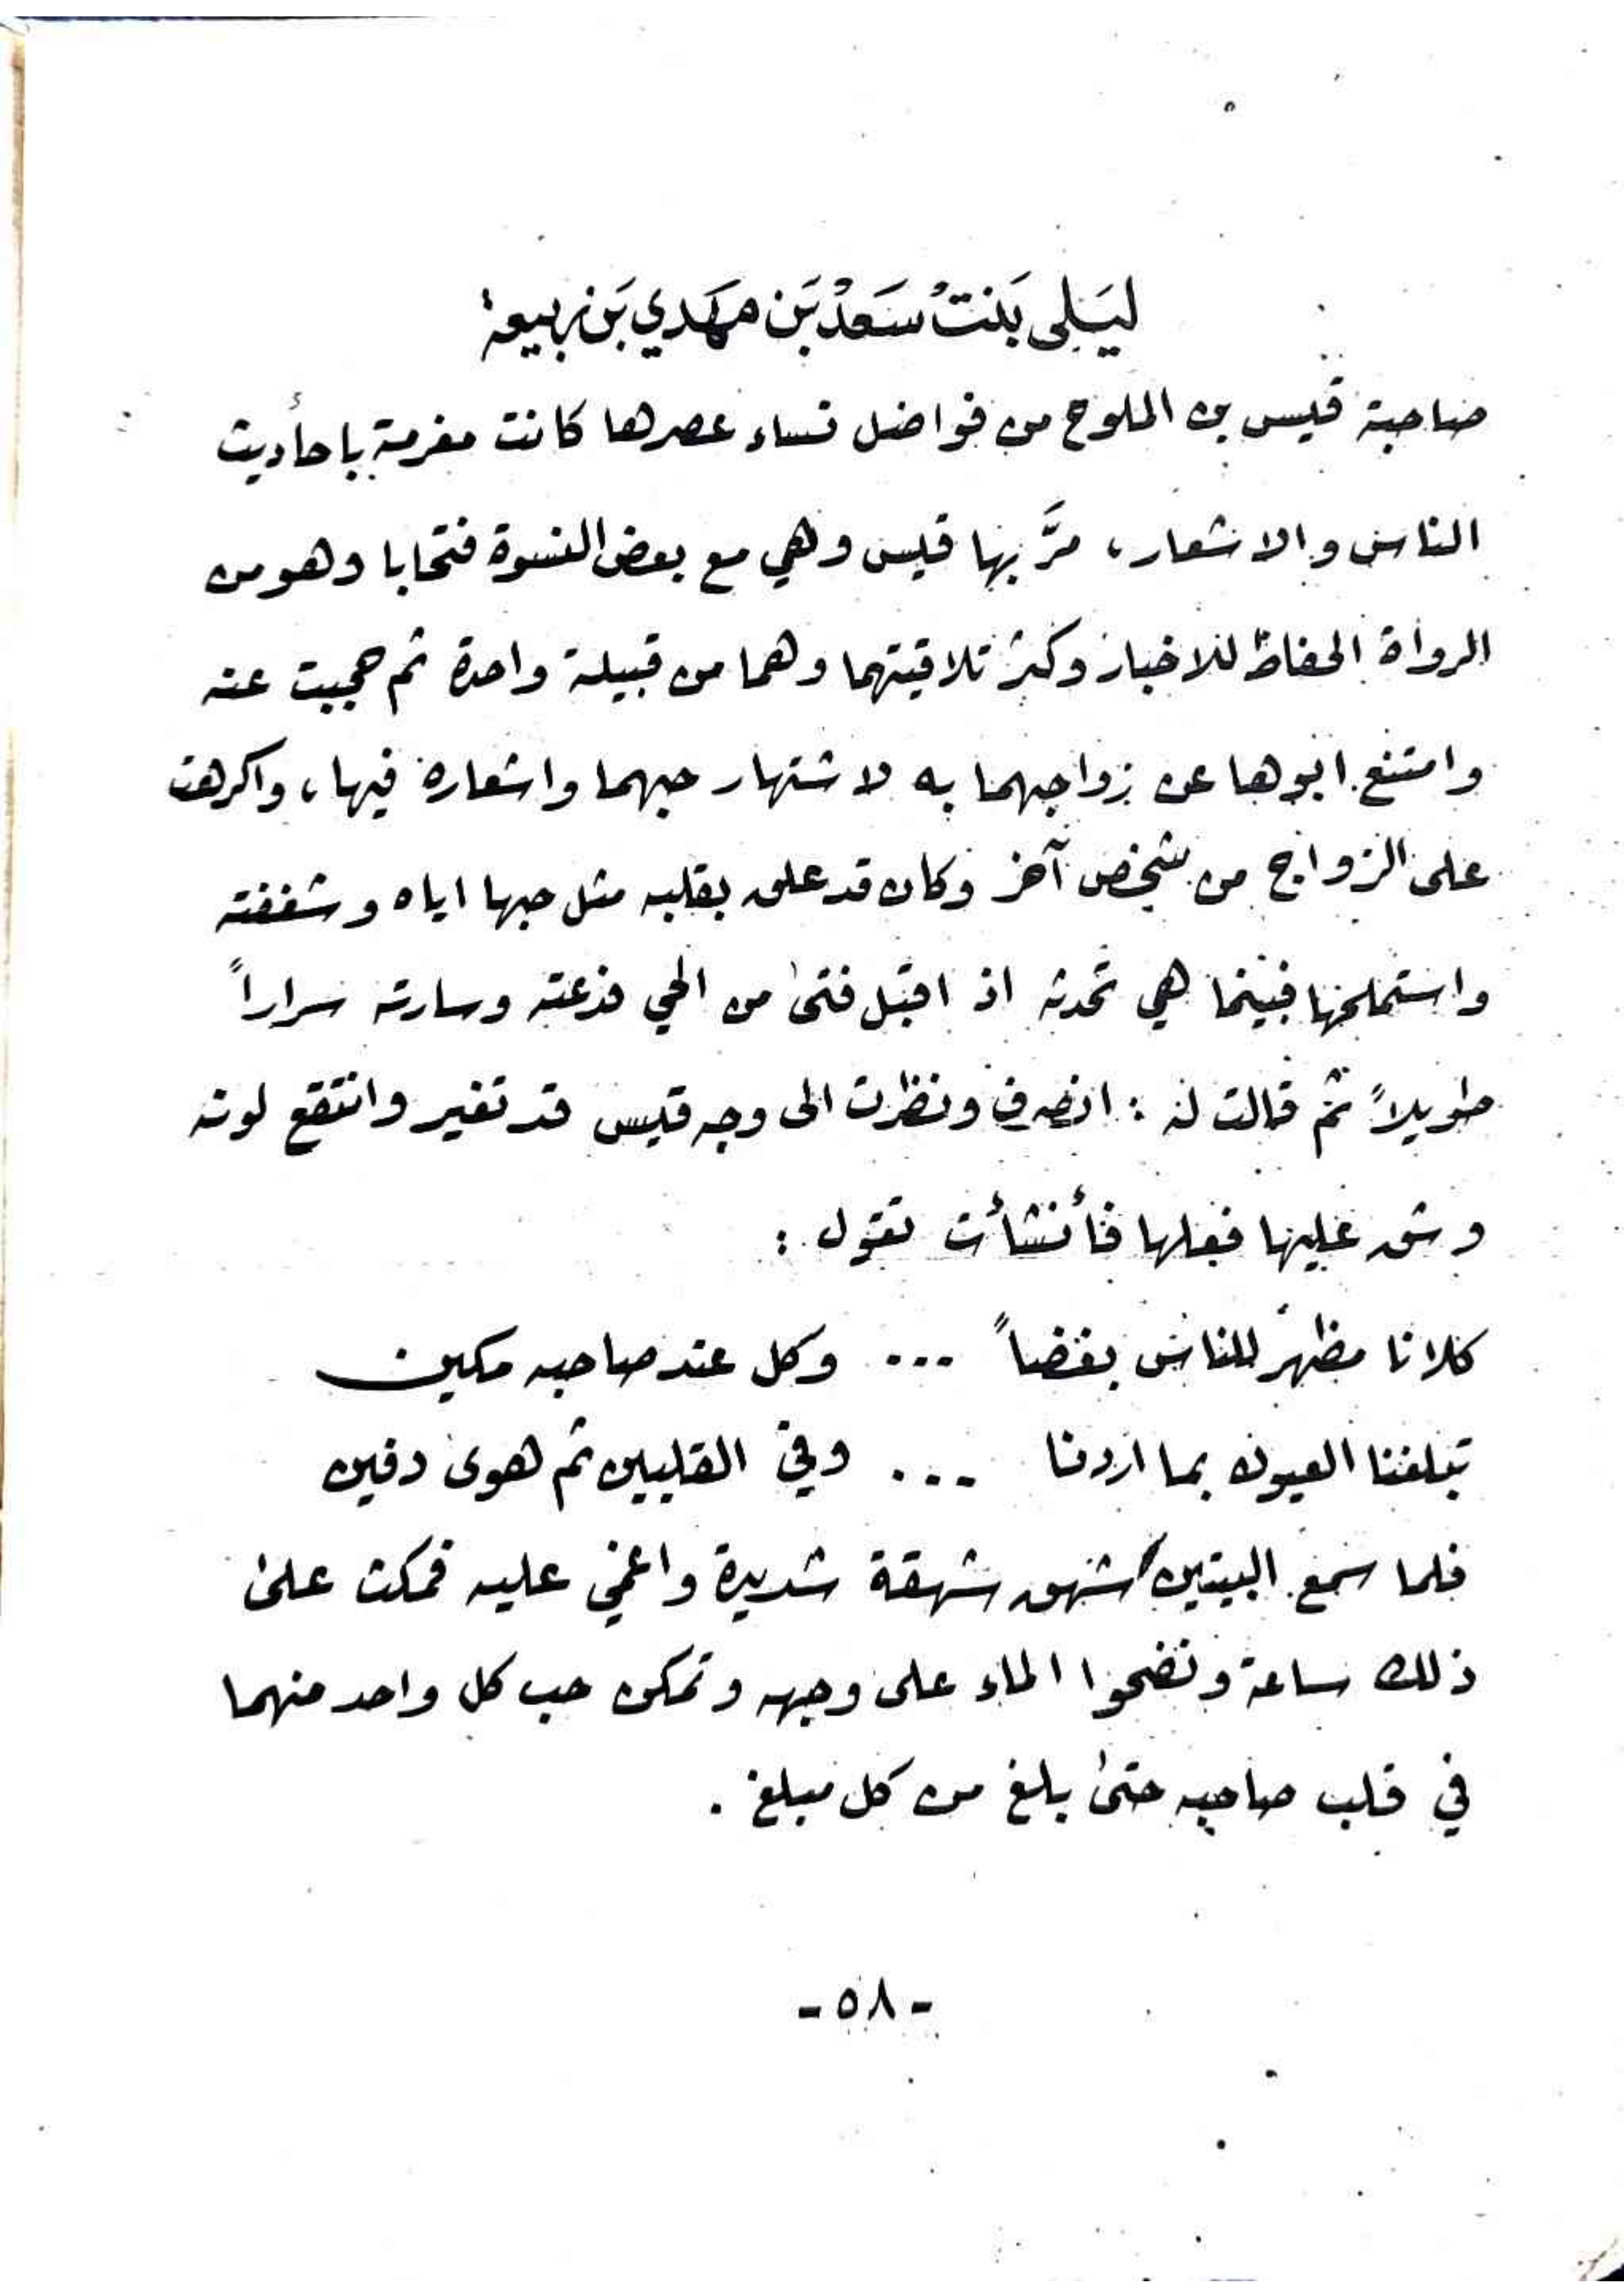 ليَلى بَنتْ سَعدْ بَن مهَدي بَن ربيعة
صاحبة قيس بن الملوح من فواضل نساء عصرها كانت مغرمة بأحاديث
الناس والاشعار، مرَّ بها قيس وهي مع بعض النسوة فتحابا وهو من
الرواة الحفاظ للاخبار وكثر تلاقيتهما وهما من قبيلة واحدة ثم حجبت عنه
وامتنع ابوها عن زواجهما به لاشتهار حبهما واشعاره فيها، واكرهت
على الزواج من شخص آخر وكان قد علق بقلبه مثل حبها اياه وشغفته
واستملحها فبينما هي تحدثه اذ اقبل فتى من الحي فدعته وسارته سراراً
طويلاً ثم قالت له : انصرف ونظرت الى وجه قيس قد تغير وانتقع لونه
وشق عليها فعلها فأنشأت تقول :
كلانا مظهر للناس بغضاً ... وكل عند صاحبه مكين
تبلغنا العيون بما اردنا ... وفي القلبين ثم هوى دفين
فلما سمع البيتين شهق شهقة شديدة واغمي عليه فمكث على
ذلك ساعة ونضحوا الماء على وجهه وتمكن حب كل واحد منهما
في قلب صاحبه حتى بلغ من كل مبلغ .
- ٥٨ -